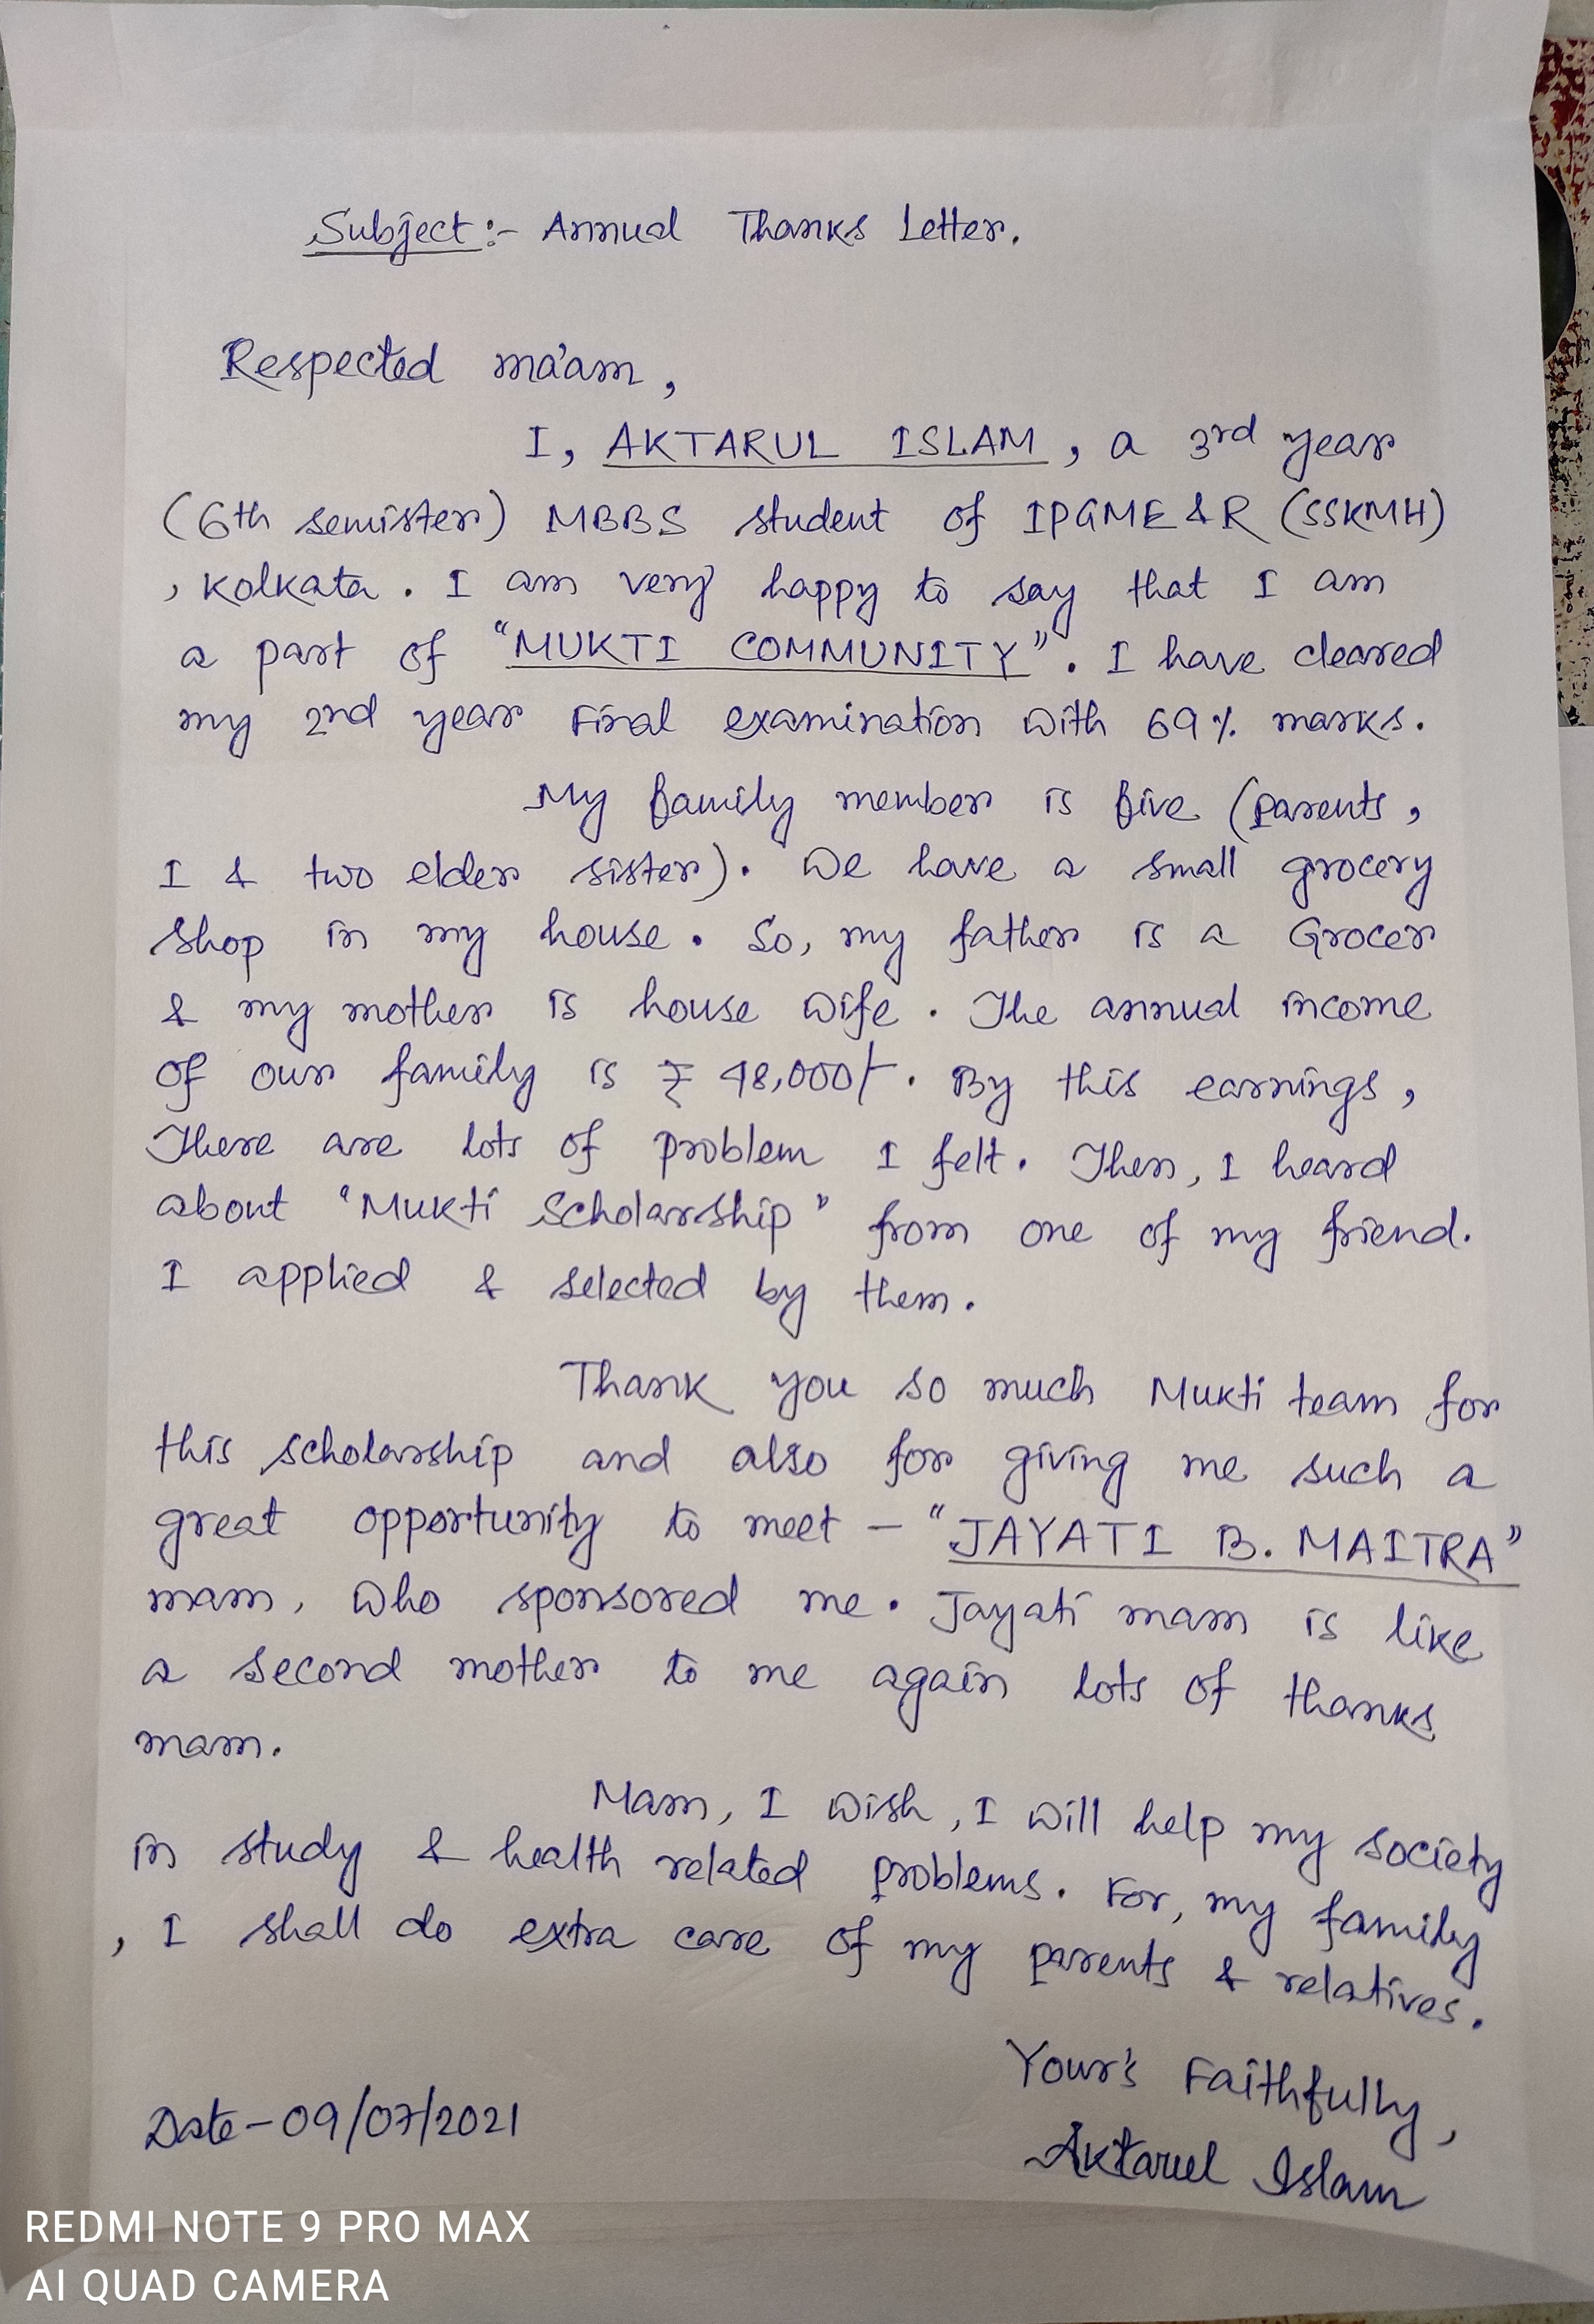 Subject:- Annual Thanks Letter.
Respected ma'am,
I, AKTARUL ISLAM, a 3rd year
(6th semister) MBBS student of IPGME&R (SSKMH)
, Kolkata. I am very happy to say that I am
a part of "MUKTI COMMUNITY". I have cleared
my 2nd year Final examination with 69% marks.
My family member is five (parents,
I & two elder sister). We have a small grocery
shop in my house. So, my father is a Grocer
& my mother is house wife. The annual income
of our family is ₹ 48,000/-. By this earnings,
There are lots of problem I felt. Then, I heard
about "Mukti Scholarship" from one of my friend.
I applied & selected by them.
Thank you so much Mukti team for
this scholarship and also for giving me such a
great opportunity to meet - "JAYATI B. MAITRA"
mam, who sponsored me. Jayati mam is like
a second mother to me again lots of thanks
mam.
Mam, I wish, I will help my society
in study & health related problems. For, my family
, I shall do extra care of my parents & relatives.
Your's Faithfully,
Date-09/07/2021
Aktarul Islam
REDMI NOTE 9 PRO MAX
AI QUAD CAMERA